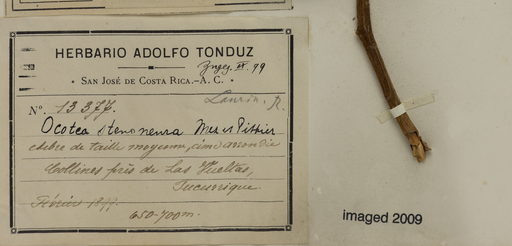 HERBARIO ADOLFO TONDUZ
San José de Costa Rica.-A. C.
Laurin.
No. 13377.
Ocotea stenoneura Mez et Pittier
arbre de taille moyenne, cime arrondie
Collines près de Las Vueltas,
Tucurrique.
Février 1899.
650-700m.
imaged 2009